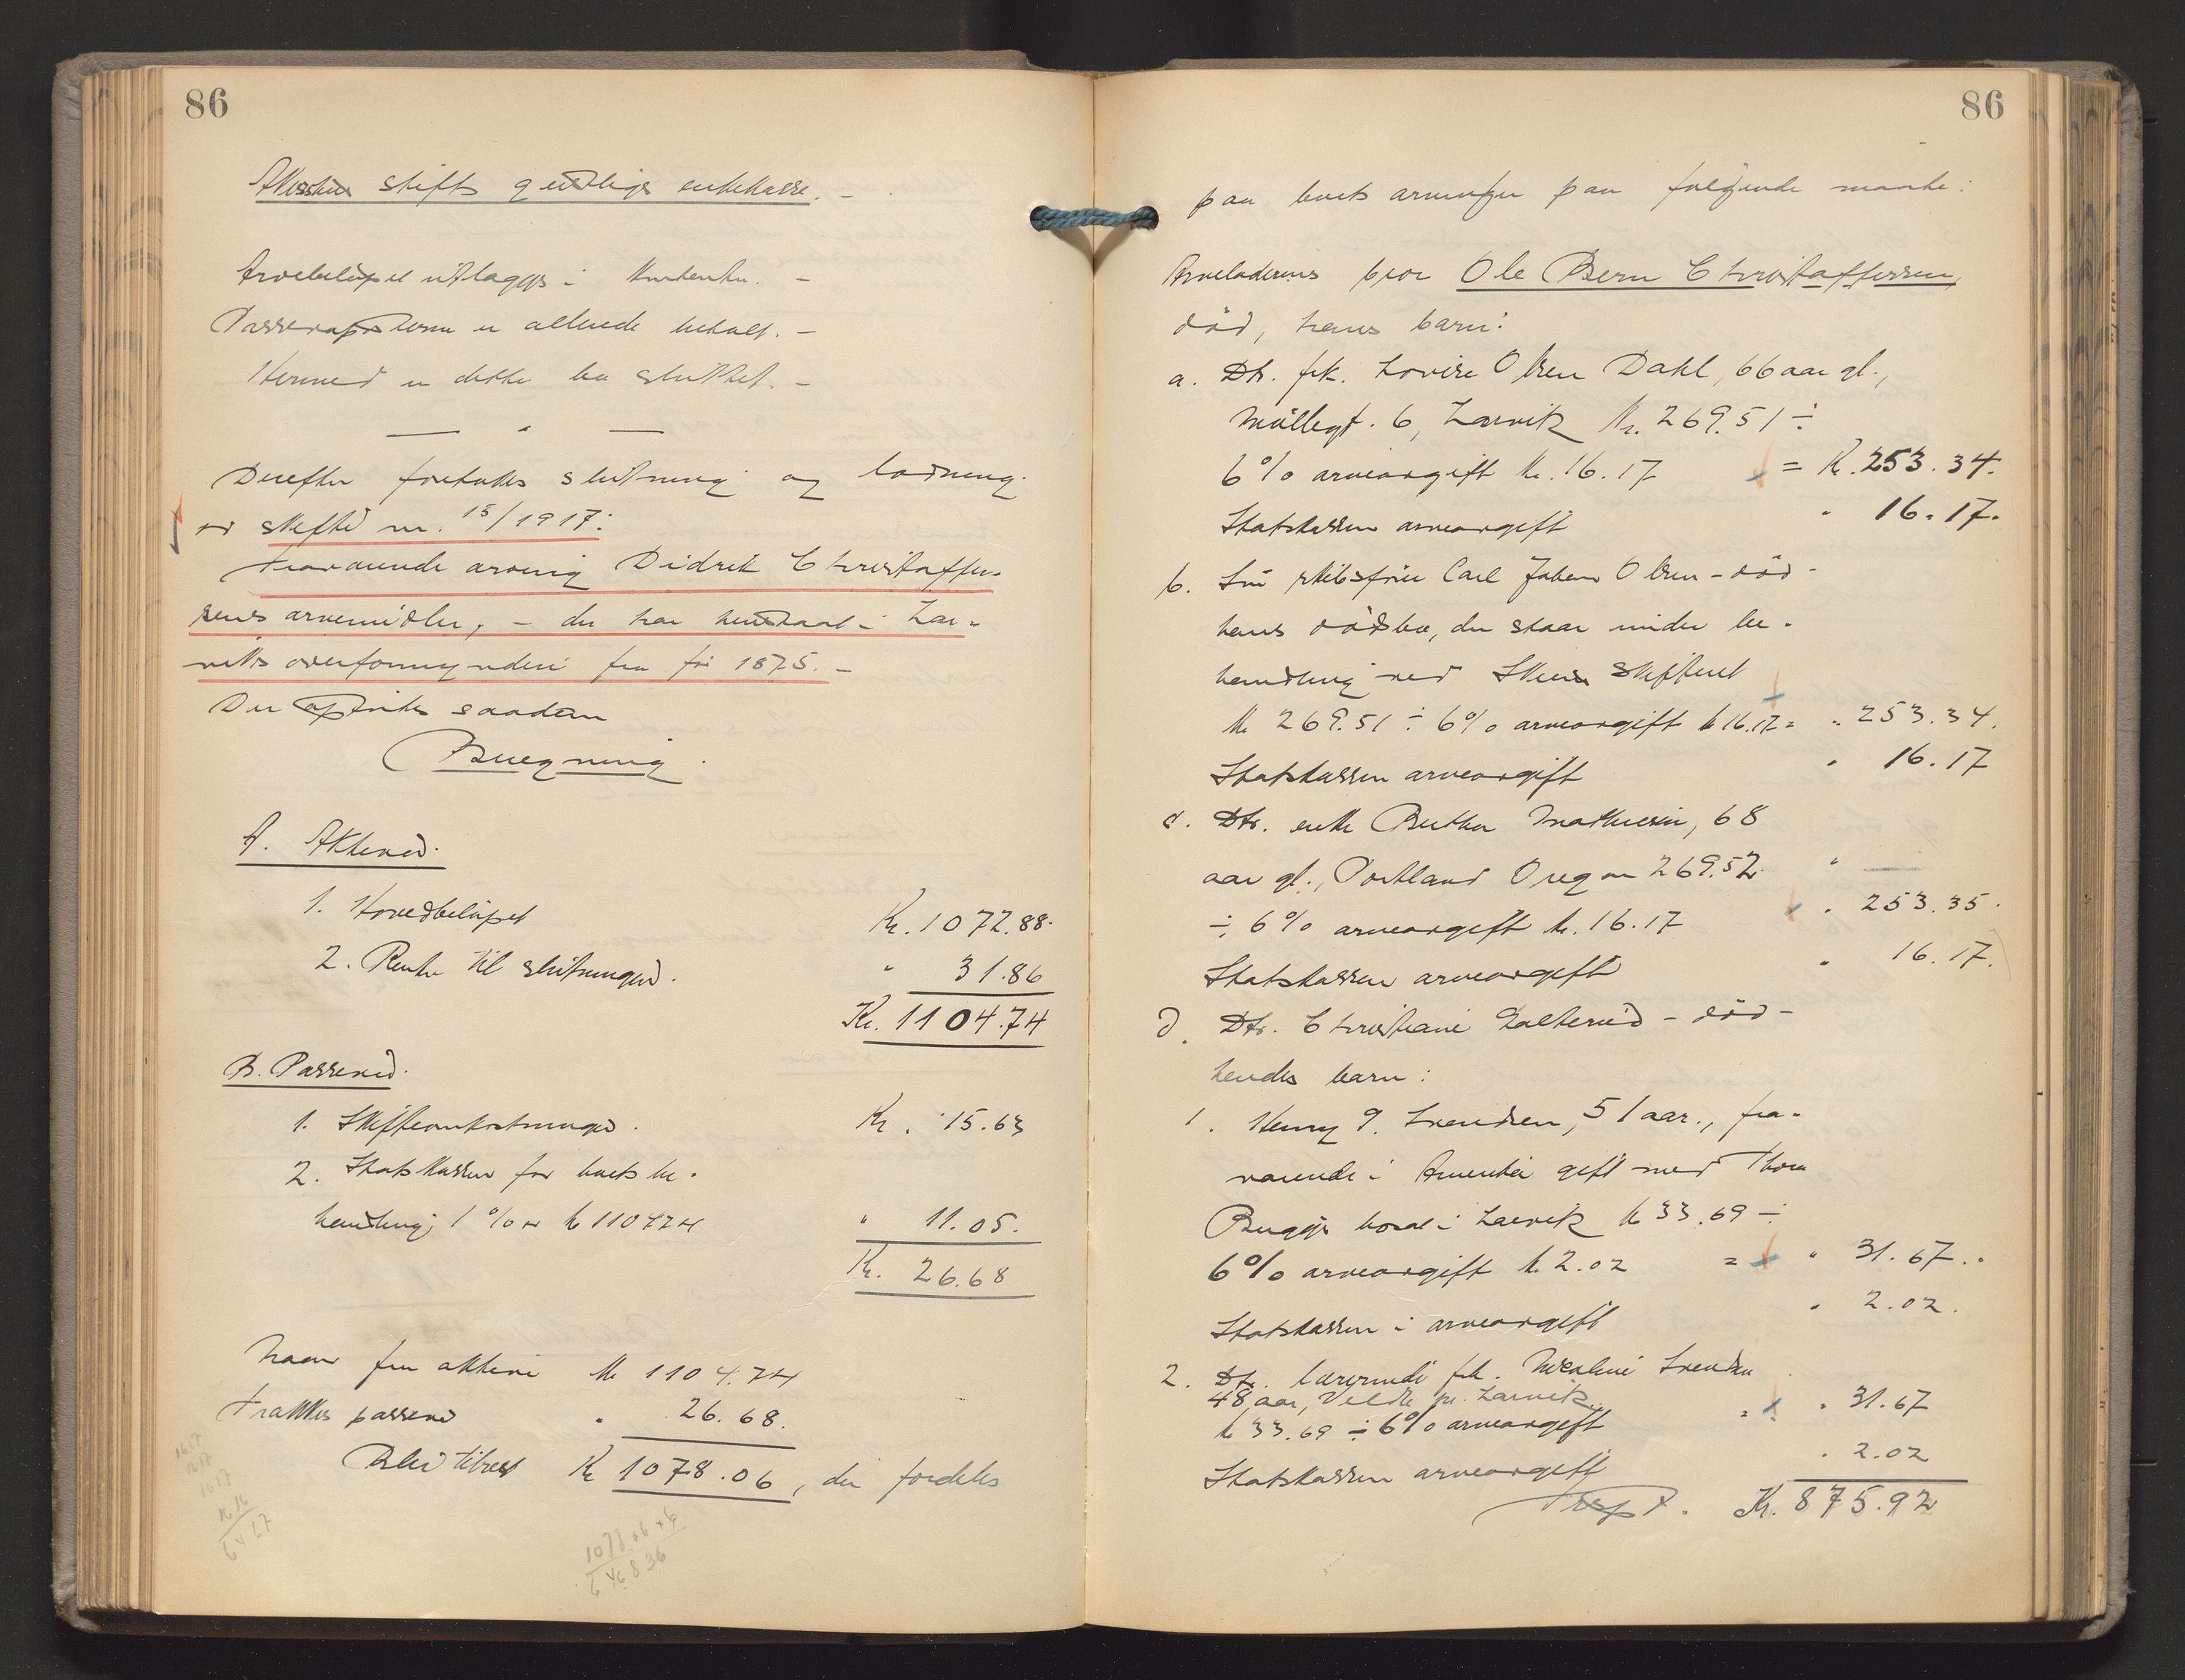 86
stifts geistlige enkekasse. –
Arvebeløpet utlægges i kontanter. –
Passivaposterne er allerede betalt. –
Hermed er dette bo sluttet. –
Derefter foretokes slutning og lodning
av skifte nr. 15/1917:
Fraværende arving Didrik Christoffer-
sens arvemidler, – der har henstaat i Lar-
viks overformynderi fra før 1875. –
Der optokes saadan
Beregning.
A. Aktiva.
1. Hovedbeløpet Kr. 1072.88.
2. Rente til slutningen. " 31.86
Kr. 1104.74
B. Passiva.
1. Skifteomkostninger. Kr. 15.63
2. Statskassen for boets be-
handling 1 % av kr 1104.74 " 11.05.
Kr. 26.68
Naar fra aktiva kr 1104.74
trækkes passiva " 26.68.
Blir tilrest Kr 1078.06, der fordeles
1617
1617
1617
1616
6467
1078.06 × 6
646836
86
paa boets arvinger paa følgende maate:
Arveladerens bror Ole Bern Christoffersen,
død, hans barn:
a. Dtr. frk. Lovise Olsen Dahl, 66 aar gl.,
Møllegt. 6, Larvik Kr. 269.51 ÷
6% arveavgift kr. 16.17 = Kr. 253.34.
Statskassen arveavgift " 16.17.
b. Søn skibsfører Carl Johan Olsen – død –
hans dødsbo, der staar under be-
handling ved Skiens skifteret
kr 269.51 ÷ 6% arveavgift kr 16.17 = " 253.34.
Statskassen arveavgift " 16.17
c. Dtr. enke Berthe Mathiesen, 68
aar gl., Portland Oregon 269.52 "
÷ 6% arveavgift kr. 16.17 " 253.35.
Statskassen arveavgift " 16.17.
d. Dtr. Christiane – død –
hendes barn:
1. Henny Svendsen, 51 aar., fra-
værende i Amerika gift med Thom
Bugge bosat i Larvik kr 33.69 ÷
6% arveavgift kr. 2.02 = " 31.67.
Statskassen i arveavgift " 2.02.
2. Dtr. lærerinde frk. Svendsen
48 aar, pr. Larvik
kr 33.69 ÷ 6% arveavgift = " 31.67
Statskassen arveavgift " 2.02
Trspt. Kr. 875.92